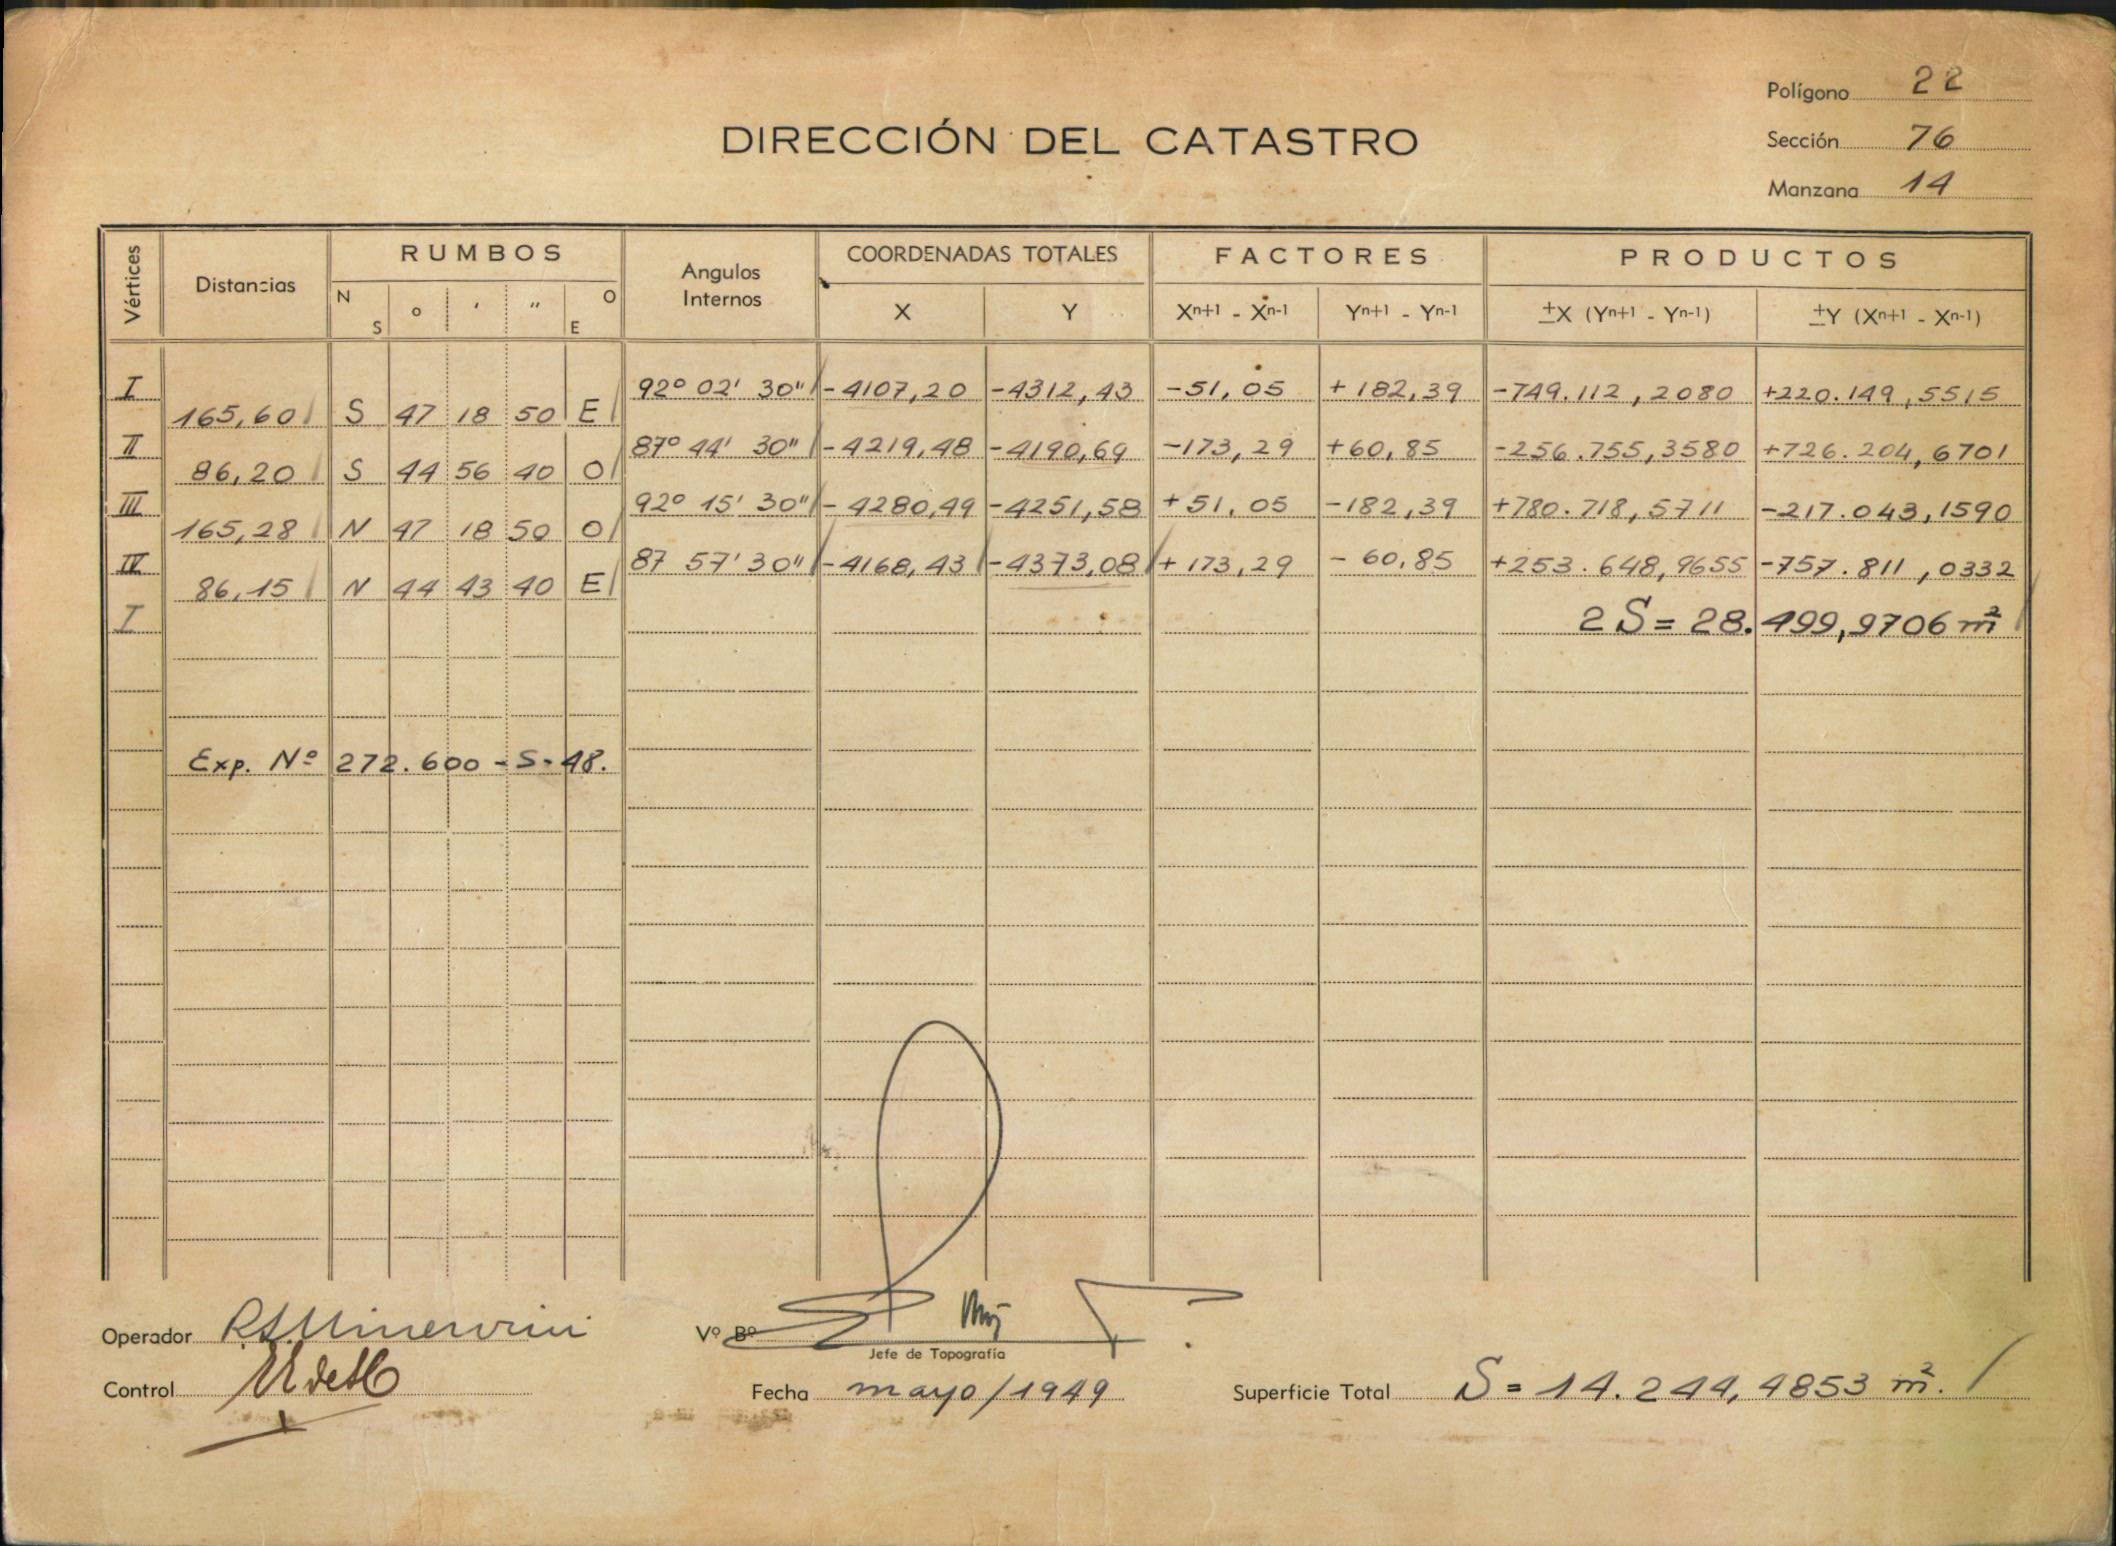 Polígono 22
DIRECCIÓN DEL CATASTRO
Sección 76
Manzana 14
Vértices Distancias RUMBOS Angulos Internos COORDENADAS TOTALES FACTORES PRODUCTOS
N S o ' " O E X Y Xn+1 - Xn-1 Yn+1 - Yn-1 ±X (Yn+1 - Yn-1) ±Y (Xn+1 - Xn-1)
I 92° 02' 30" -4107,20 -4312,43 -51,05 +182,39 -749.112,2080 +220.149,5515
165,60 S 47 18 50 E
II 87° 44' 30" -4219,48 -4190,69 -173,29 +60,85 -256.755,3580 +726.204,6701
86,20 S 44 56 40 O
III 92° 15' 30" -4280,49 -4251,58 +51,05 -182,39 +780.718,5711 -217.043,1590
165,28 N 47 18 50 O
IV 87 57' 30" -4168,43 -4373,08 +173,29 -60,85 +253.648,9655 -757.811,0332
86,15 N 44 43 40 E
I 2 S = 28.499,9706 m²
Exp. Nº 272.600 - S - 48.
Operador R.S. Minervini Vº Bº
Jefe de Topografía
Control Fecha mayo/1949 Superficie Total S = 14.244,4853 m².